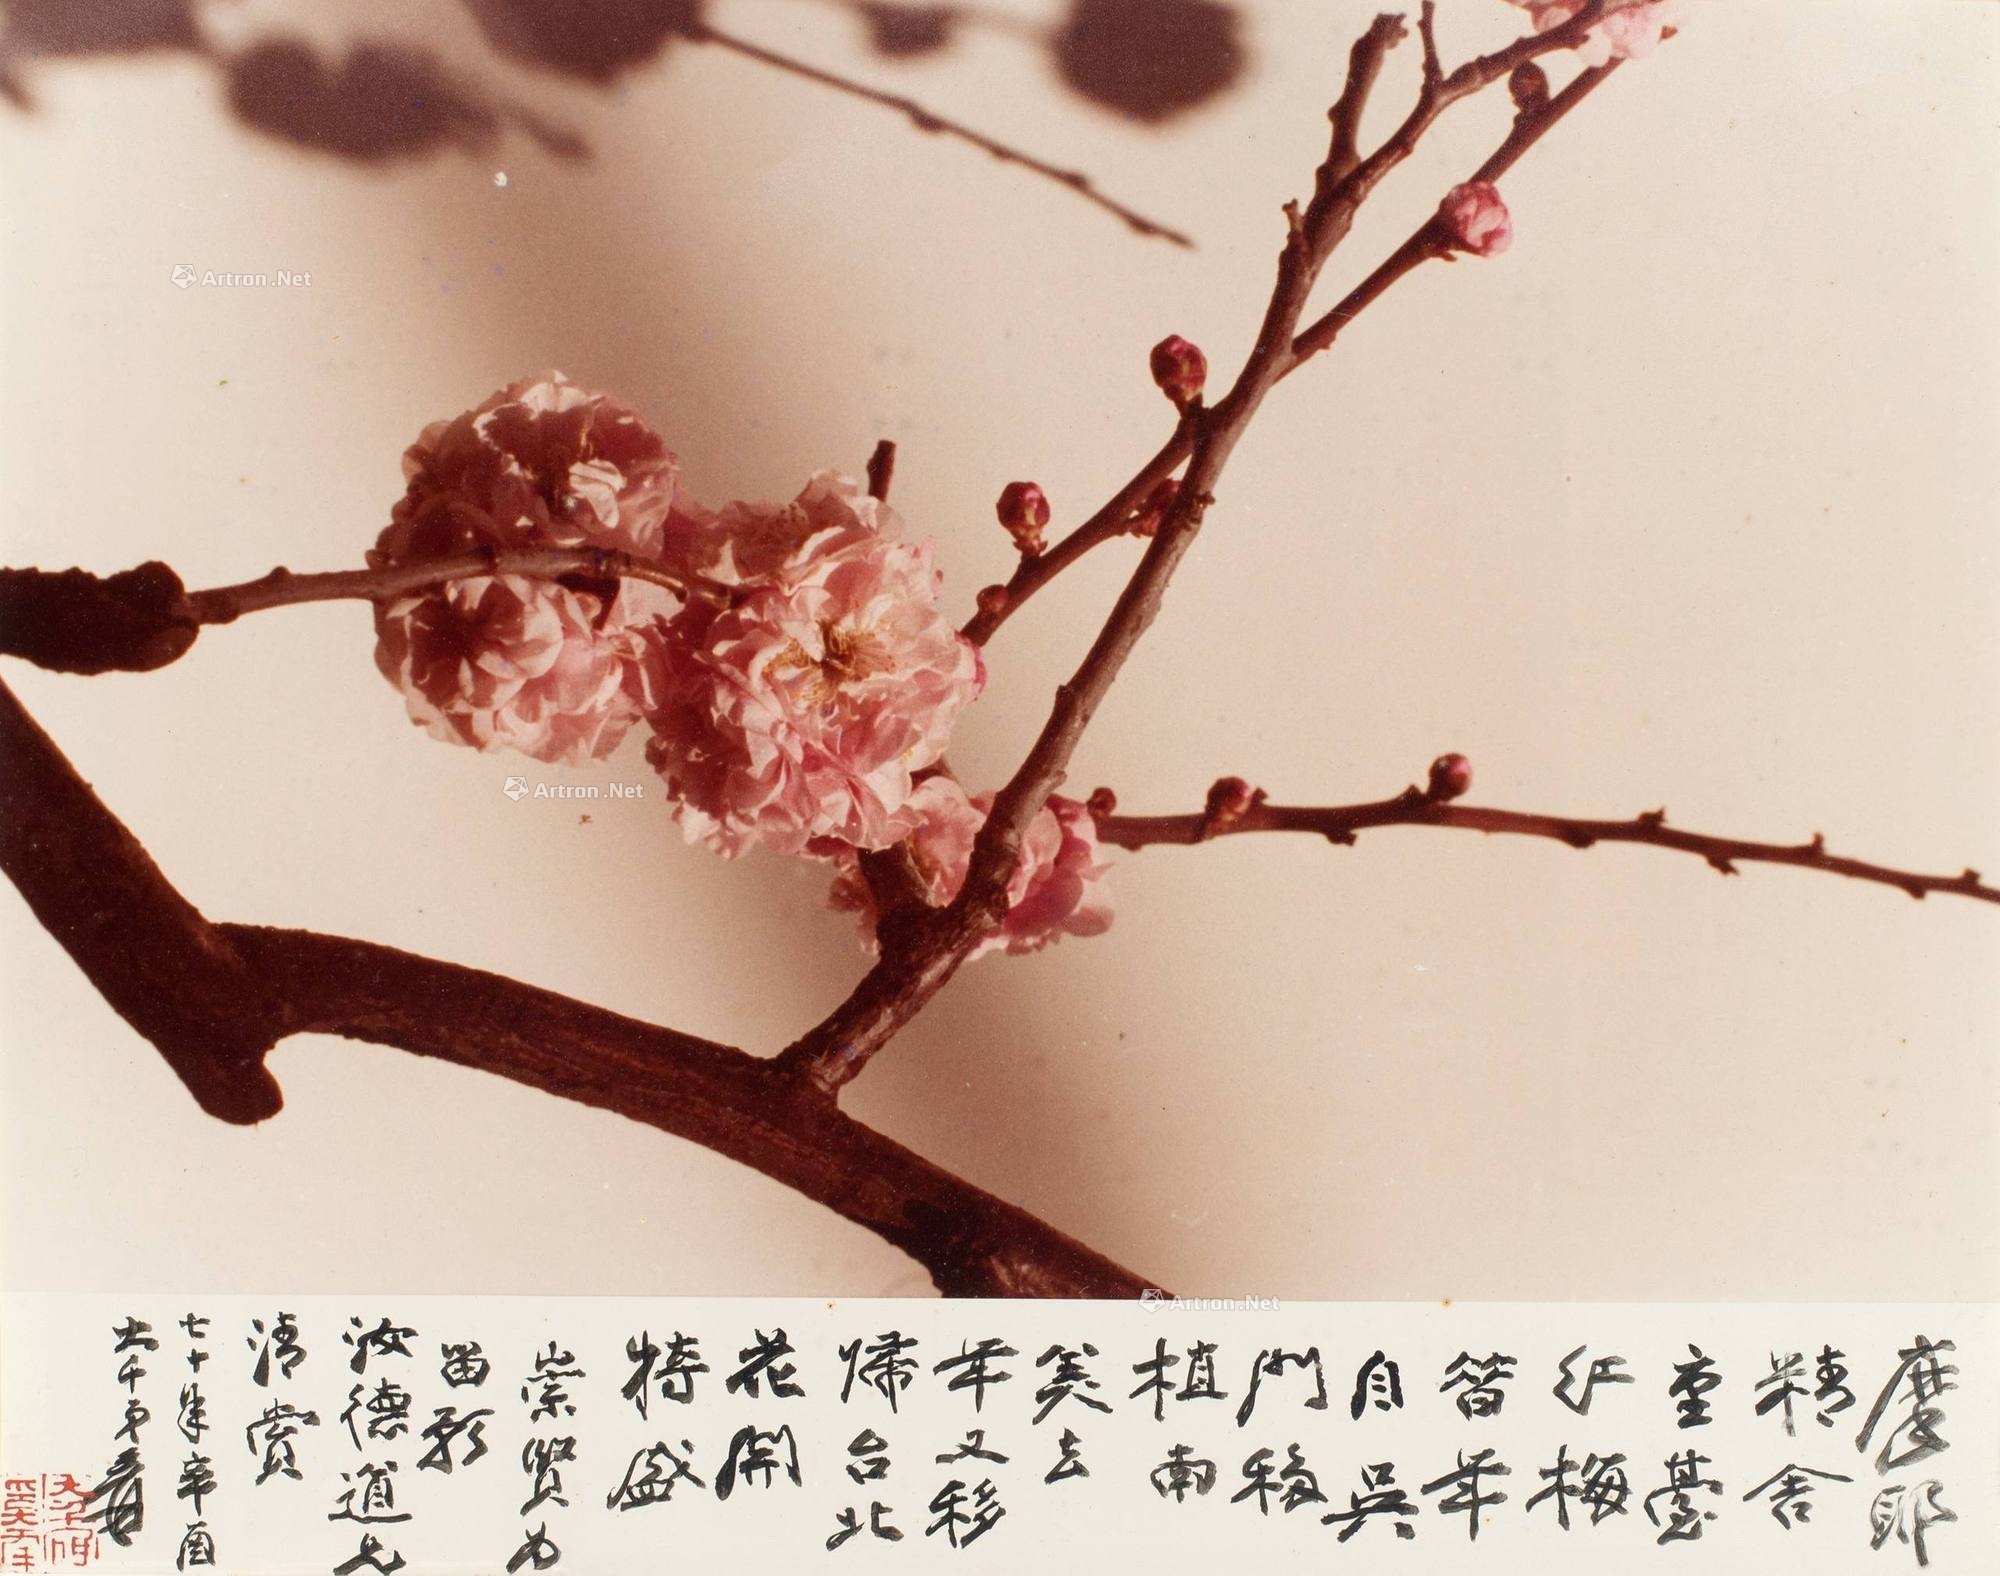 摩耶
精舍
重臺
紅梅
昔年
自吳
門移
植南
美去
年又移
歸台北
花開
特盛
崇賢為
留影
汝德道兄
清賞
七十年辛酉
大千弟爰
Artron.Net
Artron.Net
Artron.Net